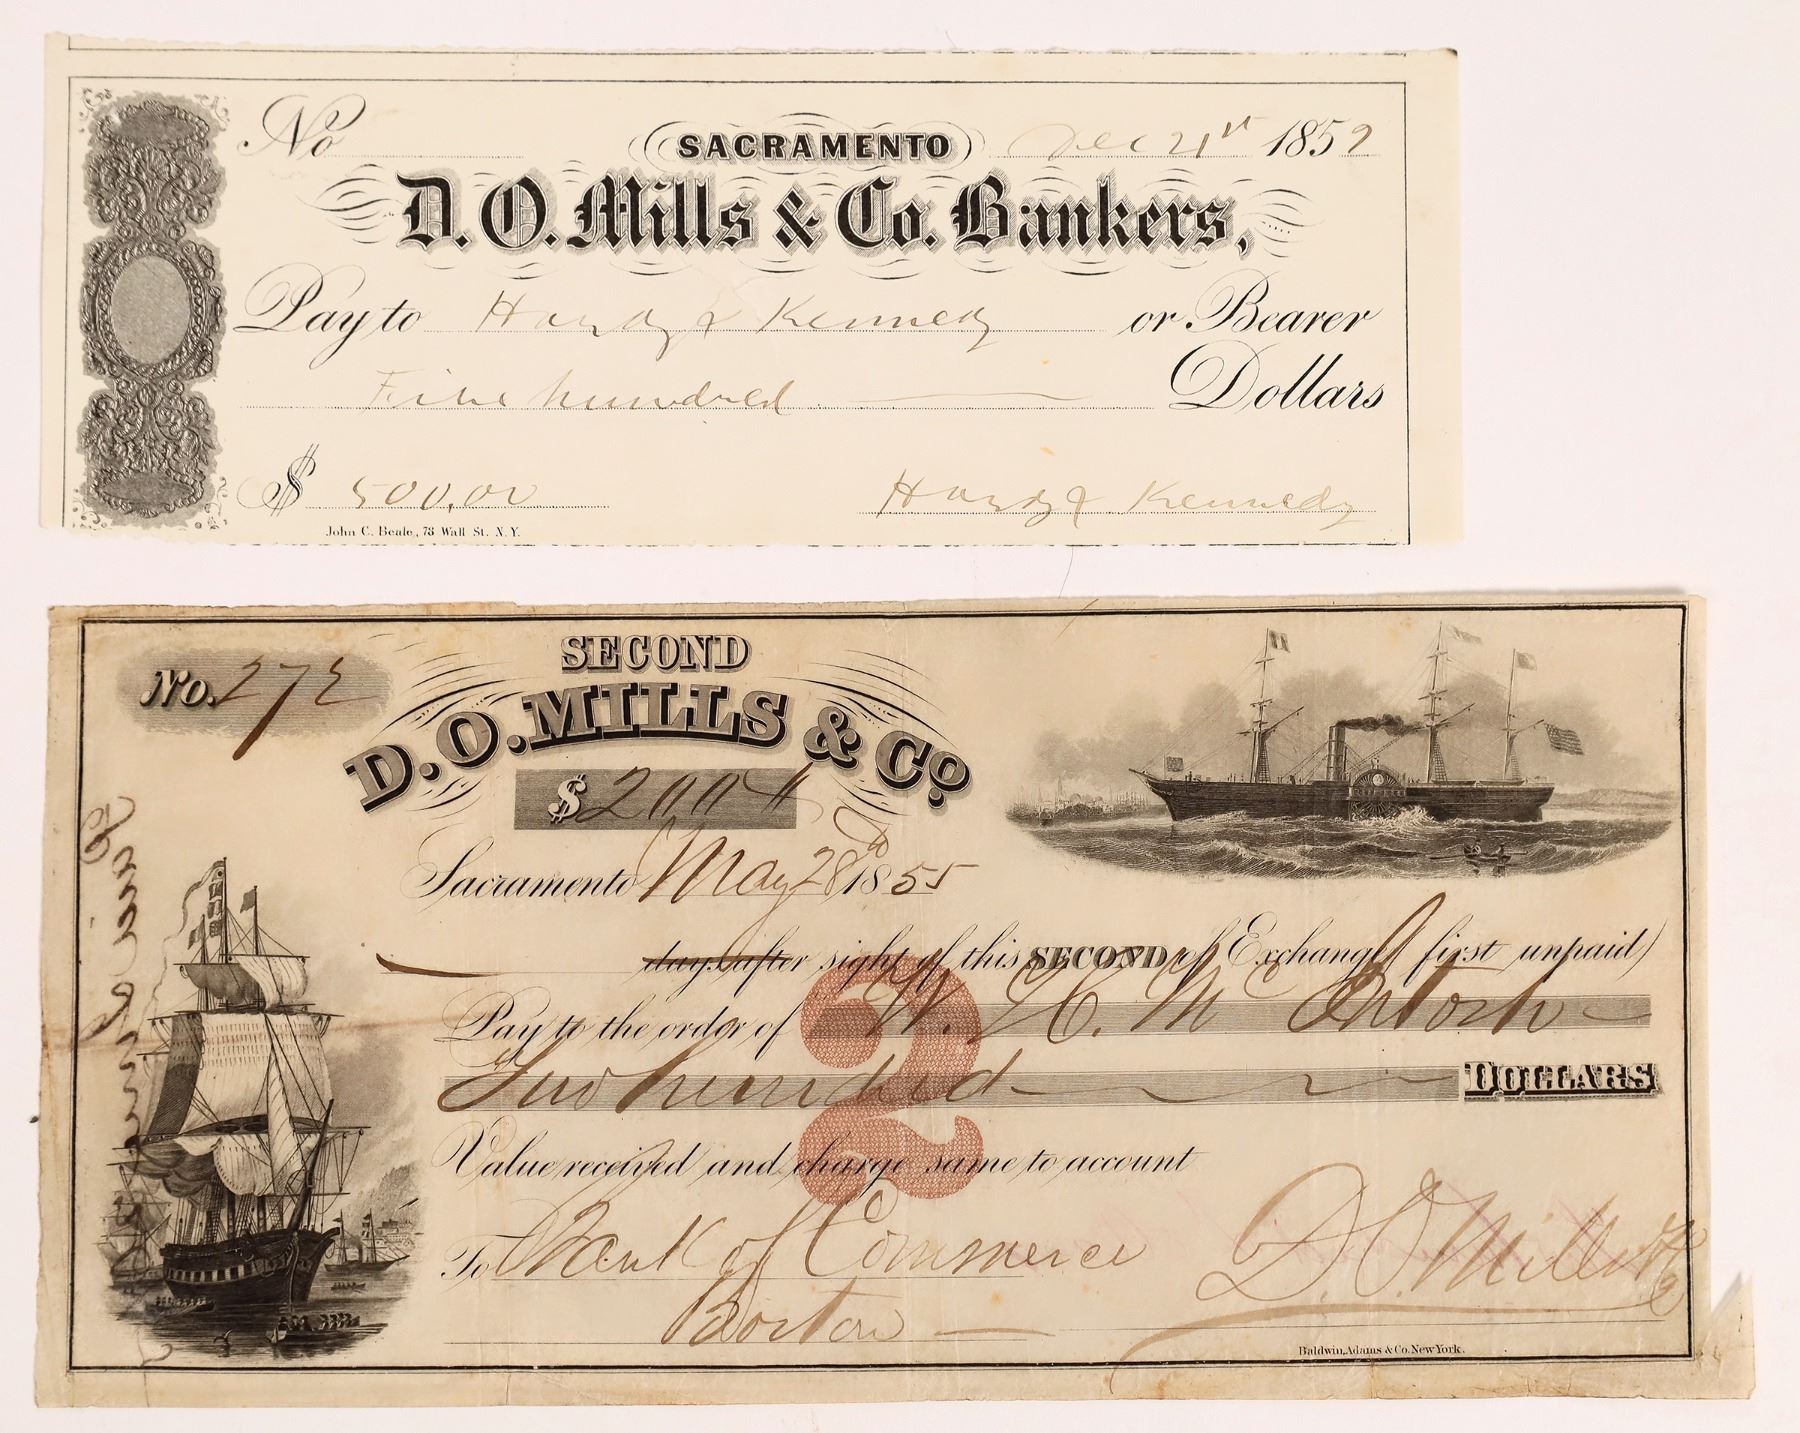 No
SACRAMENTO Dec 21st 1859
D. O. Mills & Co. Bankers,
Pay to Hardy & Kennedy or Bearer
Five hundred Dollars
$ 500.00
Hardy & Kennedy
John C. Beale, 78 Wall St. N.Y.
SECOND
No. 272
D. O. MILLS & Co.
$ 200
Sacramento May 28th 1855
days after sight of this SECOND of Exchange (first unpaid)
Pay to the order of W. H. McIntosh
Two hundred DOLLARS
2
Value received and charge same to account
To Bank of Commerce
D. O. Mills & Co
Boston
Baldwin, Adams & Co. New York.